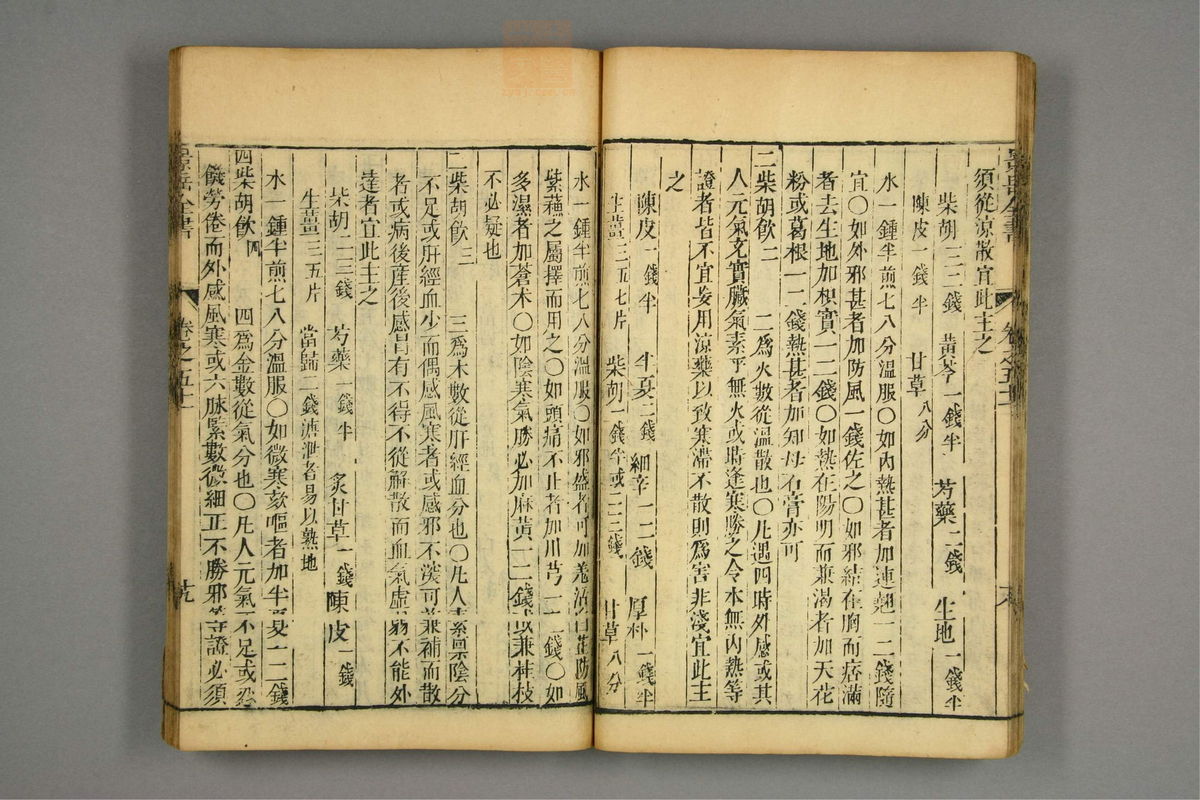 景岳全書
卷之五十一
須從涼散宜此主之
柴胡二三錢　黃芩一錢半　芍藥二錢　生地一錢半
陳皮一錢半　甘草八分
水一鍾半煎七八分溫服〇如內熱甚者加連翹一二錢隨
宜〇如外邪甚者加防風一錢佐之〇如邪結在胸而痞滿
者去生地加枳實一二錢〇如熱在陽明而兼渴者加天花
粉或葛根一二錢熱甚者加知母石膏亦可
二柴胡飲二　二爲火數從溫散也〇凡遇四時外感或其
人元氣充實臟氣素平無火或時逢寒勝之令本無內熱等
證者皆不宜妄用涼藥以致寒滯不散則爲害非淺宜此主
之
陳皮一錢半　半夏二錢　細辛一二錢　厚朴一錢半
生薑三五七片　柴胡一錢半或二三錢　甘草八分
水一鍾半煎七八分溫服〇如邪盛者可加羌活白芷防風
紫蘓之屬擇而用之〇如頭痛不止者加川芎一二錢〇如
多濕者加蒼术〇如陰寒氣勝必加麻黃一二錢或兼桂枝
不必疑也
三柴胡飲三　三爲木數從肝經血分也〇凡人素禀陰分
不足或肝經血少而偶感風寒者或感邪不深可兼補而散
者或病後產後感冒有不得不從解散而血氣虛弱不能外
達者宜此主之
柴胡二三錢　芍藥一錢半　炙甘草一錢　陳皮一錢
生薑三五片　當歸二錢溏泄者易以熟地
水一鍾半煎七八分溫服〇如微寒欬嘔者加半夏一二錢
四柴胡飲四　四爲金數從氣分也〇凡人元氣不足或忍
饑勞倦而外感風寒或六脉緊數微細正不勝邪等證必須
景岳全書
卷之五十一